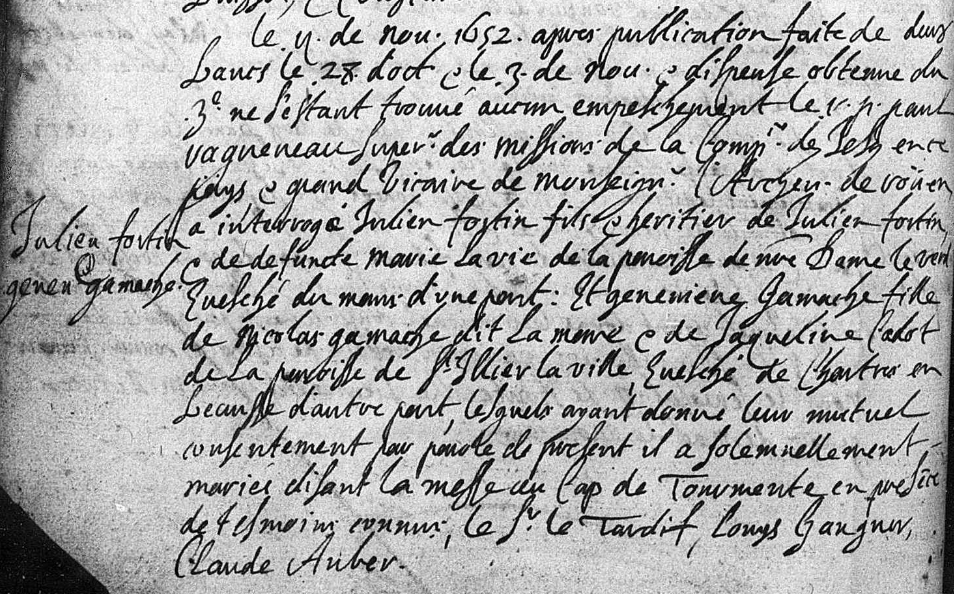 le 11. de nou. 1652. apres publication faite de deux
bancs le 28 d'oct & le 3. de nou. & dispense obtenue du
3e. ne s'estant trouué aucun empeschement le r. p. paul
vagueneau Superr. des missions de la Compie. de Jesus en ce
pays & grand Vicaire de monseignr. l'Archeu. de roüen
a interrogé Julien fortin fils & heritier de Julien fortin
Julien fortin
& de defuncte marie Lavie de la paroisse de nre Dame le vert
geneu & gamache.
Euesché du mans d'vne part : Et geneuieue Gamache fille
de Nicolas gamache dit La mare & de Jaqueline Cadot
de La paroisse de St. Illier la ville, Euesché de Chartres en
Beausse d'autre part lesquels ayant donné leur mutuel
consentement par parole de present il a solemnellement
mariés disant la messe au Cap de Tourmente en presēce
de tesmoins connus, le Sr. le Tardif, Louys Gangner,
Claude Auber.